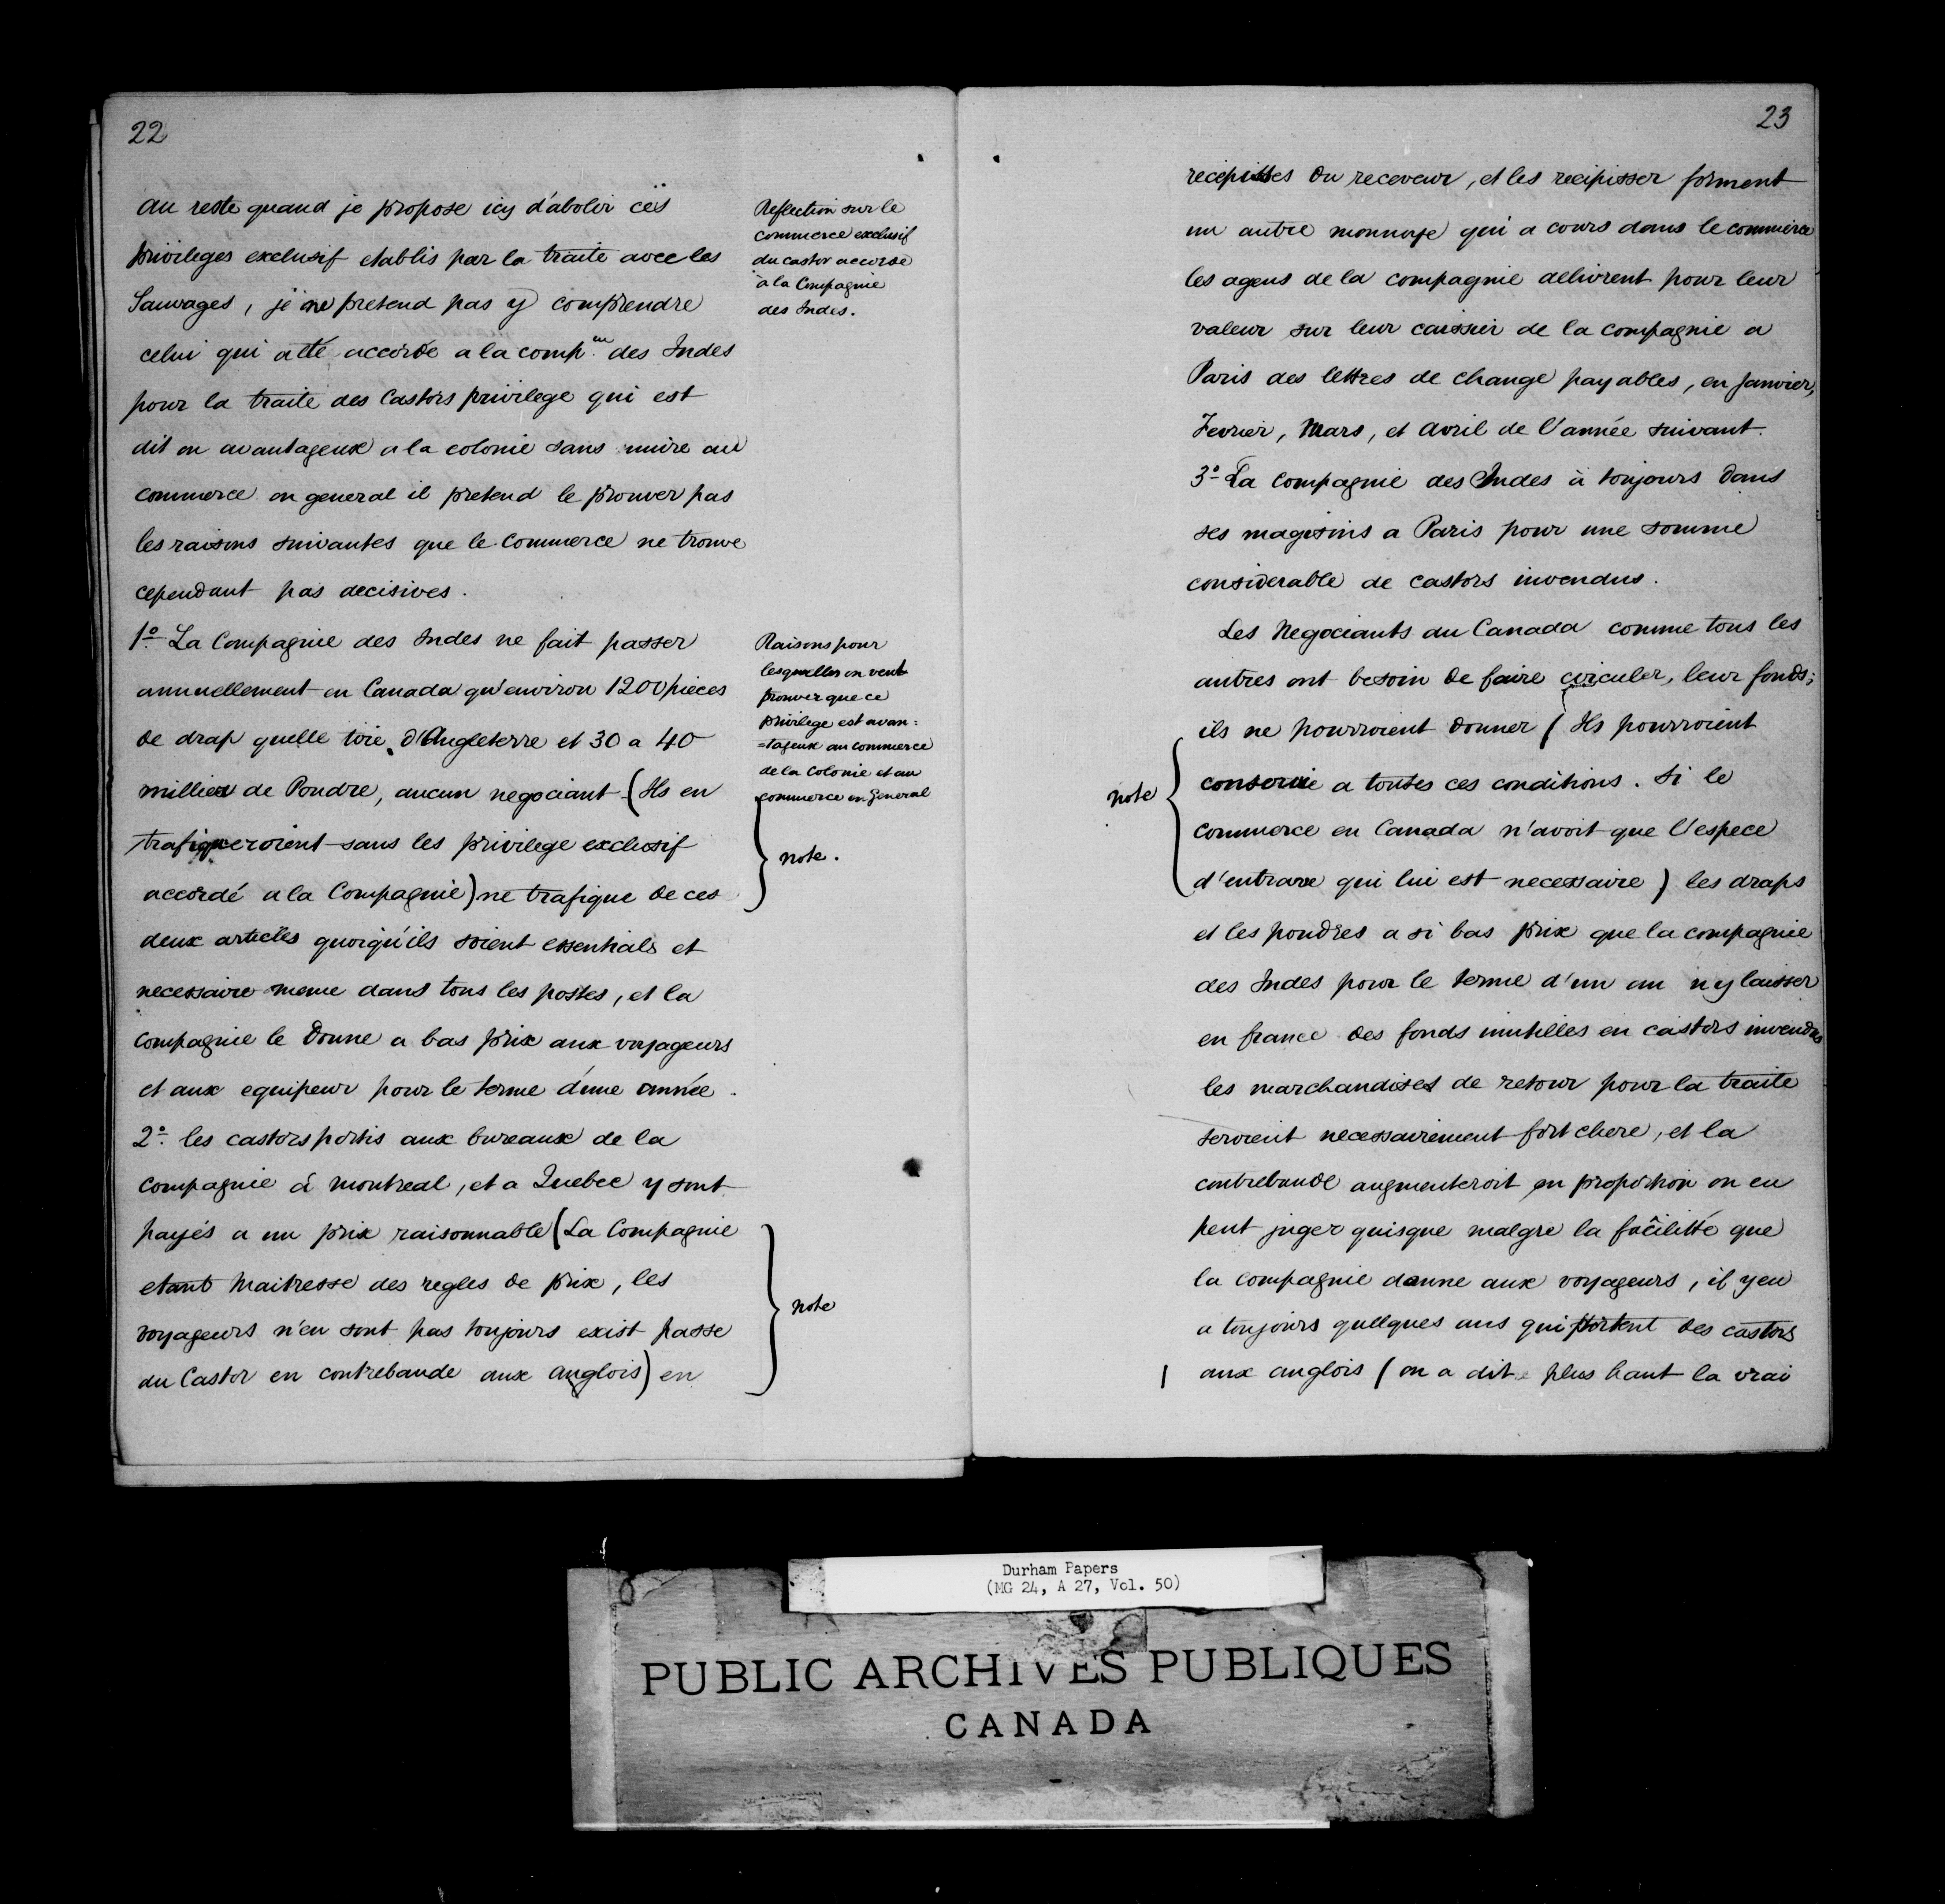 22
au reste quand je propose icy d'abolir cës
privileges exclusif etablis par la traite avec les
Sauvages, je ne pretend pas y comprendre
celui qui a tté accordé a la comp.nie des Indes
pour la traite des Castors privilege qui est
dit on avantageux a la colonie sans nuire au
commerce en general il pretend le prouver pas
les raisons suivantes que le commerce ne trouve
cependant pas decisives.
Reflection sur le
commerce exclusif
du castor accordé
à la Compagnie
des Indes.
1º La Compagnie des Indes ne fait passer
annuellement en Canada qu'environ 1200 pieces
de drap quelle tire d'Angleterre et 30 a 40
millier de Poudre, aucun negociant (Ils en
trafiqueroient sans les privilege exclusif
accordé a la Compagnie) ne trafique de ces
deux articles quoiqu'ils soient essentials et
necessaire meme dans tous les postes, et la
compagnie le donne a bas prix aux voyageurs
et aux equipeur pour le terme d'une année.
Raisons pour
lesquelles on veut
prouver que ce
privilege est avan=
=tageux au commerce
de la Colonie et au
commerce en General
note.
2º les castors portis aux bureaux de la
compagnie á Montreal, et a Quebec y sont
payés a un prix raisonnable (La Compagnie
etant Maitresse des regles de prix, les
voyageurs n'en sont pas toujours exist passe
du Castor en contrebande aux anglois) en
note
23
recepisses du receveur, et les recipisser forment
un autre monnoye qui a cours dans le commerce
les agens de la compagnie delivrent pour leur
valeur sur leur caissier de la compagnie a
Paris des lettres de change payables, en Janvier,
Fevrier, Mars, et Avril de l'année suivant.
3º La compagnie des Indes à toujours dans
ses magisins a Paris pour une somme
considerable de castors invendus.
Les Negociants du Canada comme tous les
autres ont besoin de faire circuler, leur fonds;
ils ne pourroient donner (Ils pourroient
a toutes ces conditions. Si le
commerce en Canada n'avoit que l'espece
d'entrave qui lui est necessaire) les draps
et les poudres a si bas prix que la compagnie
des Indes pour le terme d'un an n y laisser
en france des fonds inutilles en castors invendus
les marchandises de retour pour la traite
seroient necessairement fort chere, et la
contrebande augmenteroit en proportion on en
peut juger quisque malgre la facilitté que
la compagnie donne aux voyageurs, il y en
a toujours quelques uns qui portent des castors
aux anglois (on a dit plus haut la vrai
note
Durham Papers
(MG 24, A 27, Vol. 50)
PUBLIC ARCHIVES PUBLIQUES
CANADA